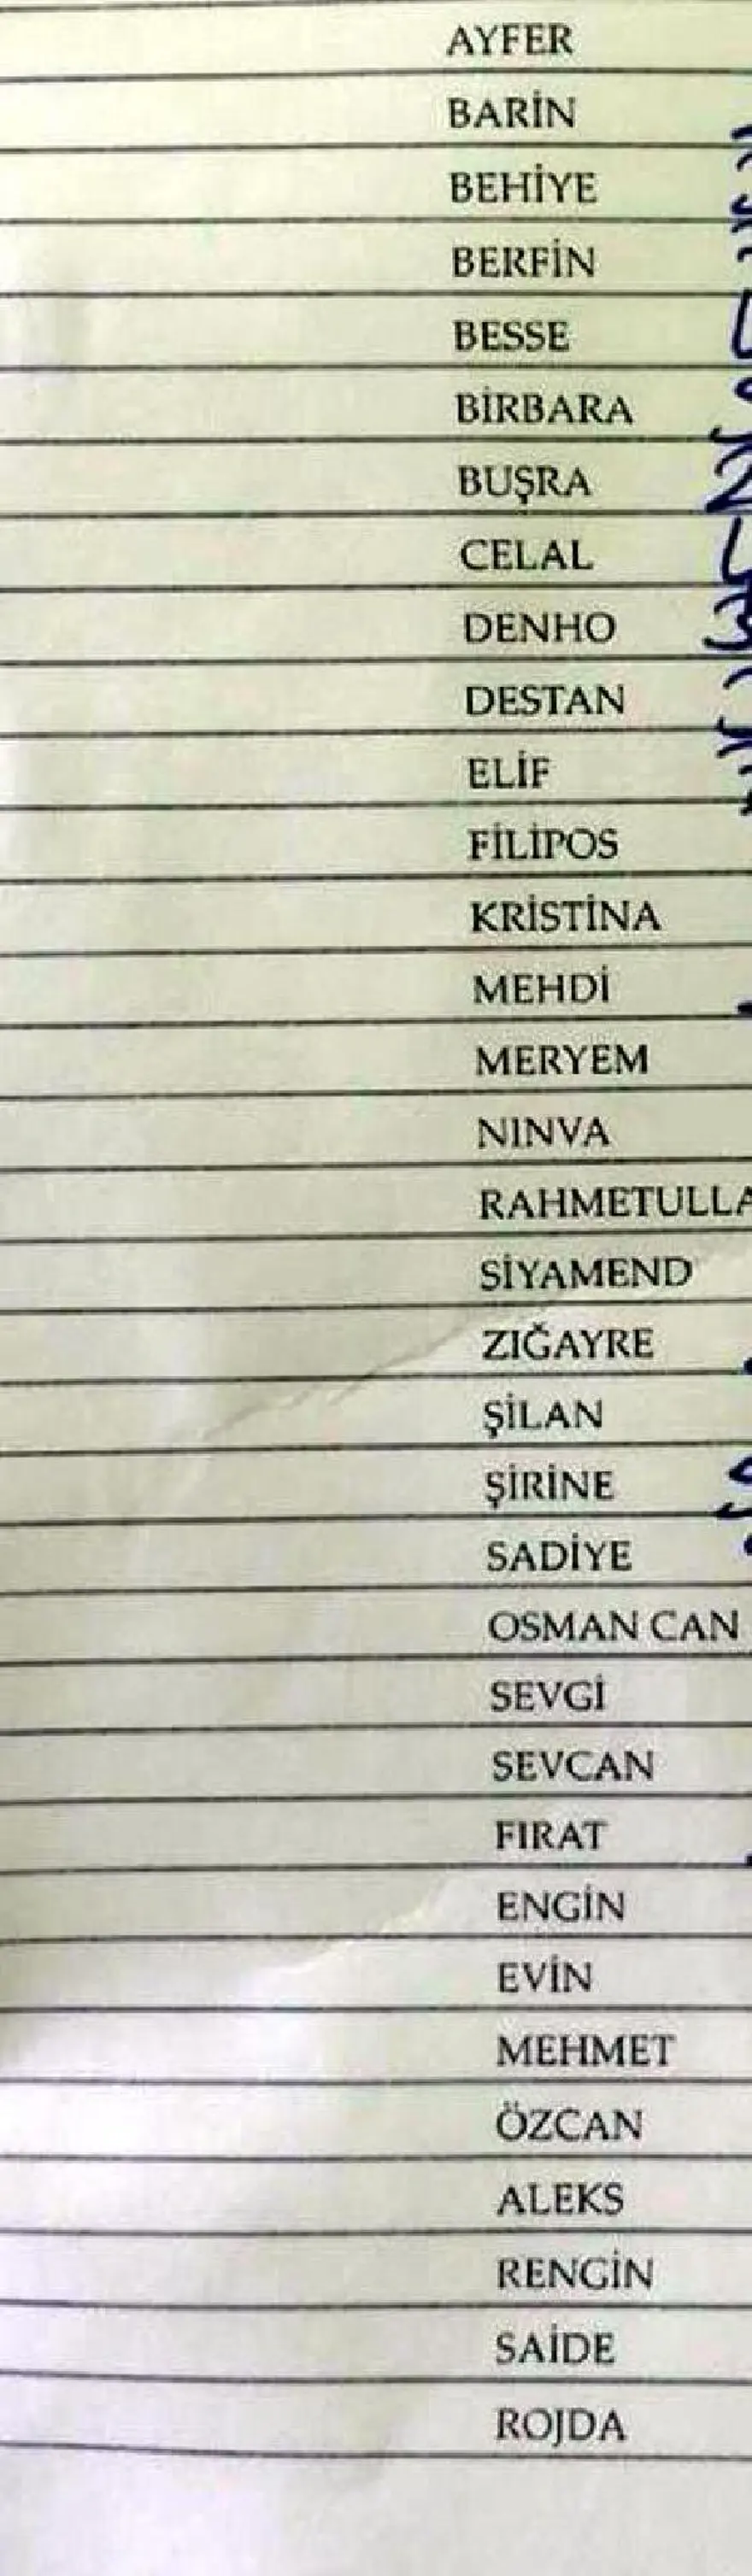 AYFER
BARİN
BEHİYE
BERFİN
BESSE
BİRBARA
BUŞRA
CELAL
DENHO
DESTAN
ELİF
FİLİPOS
KRİSTİNA
MEHDİ
MERYEM
NINVA
RAHMETULLA
SİYAMEND
ZIĞAYRE
ŞİLAN
ŞİRİNE
SADİYE
OSMAN CAN
SEVGİ
SEVCAN
FIRAT
ENGİN
EVİN
MEHMET
ÖZCAN
ALEKS
RENGİN
SAİDE
ROJDA